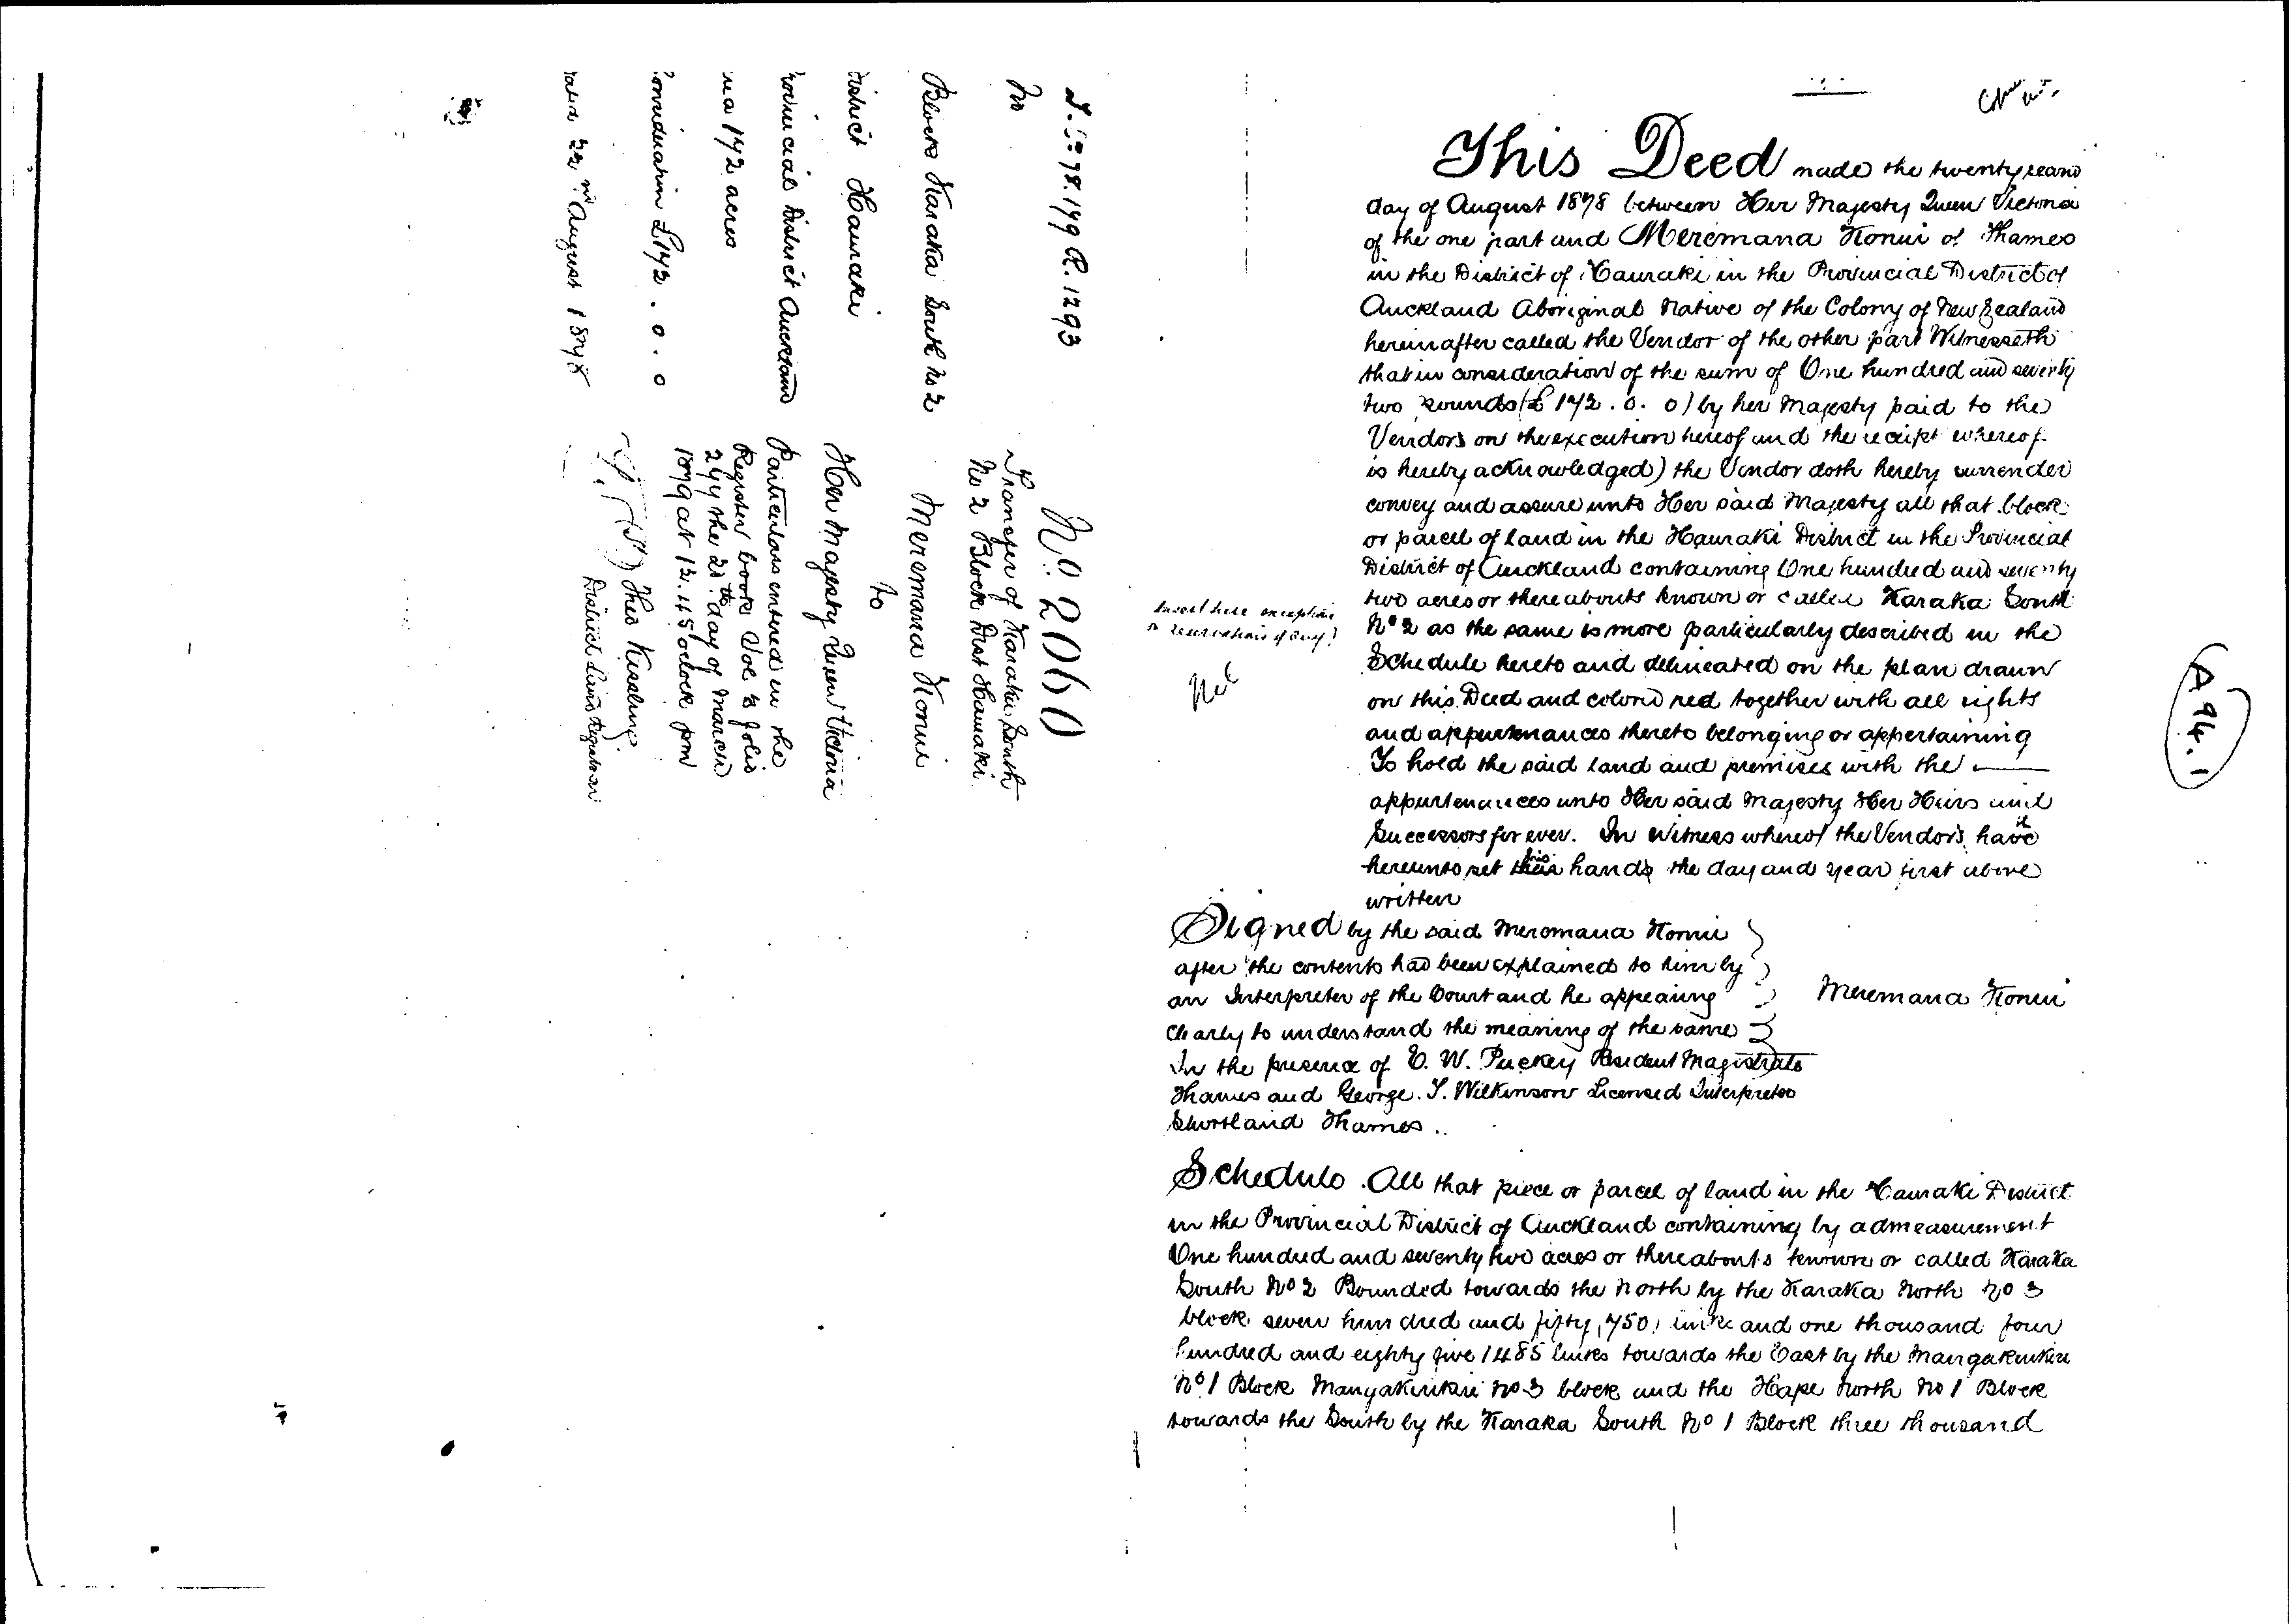 This Deed made the twenty second
day of August 1878 between Her Majesty Queen Victoria
of the one part and Meremana Konui of Thames
in the District of Hauraki in the Provincial District of
Auckland Aboriginal Native of the Colony of New Zealand
hereinafter called the Vendor of the other part Witnesseth
that in consideration of the sum of One hundred and seventy
two pounds (£172.0.0) by her Majesty paid to the
Vendors on the execution hereof and the receipt whereof
is hereby acknowledged) the Vendor doth hereby surrender
convey and assure unto Her said Majesty all that block
or parcel of land in the Hauraki District in the Provincial
District of Auckland containing One hundred and seventy
two acres or thereabouts known or called Karaka South
No 2 as the same is more particularly described in the
Schedule hereto and delineated on the plan drawn
on this Deed and colored red together with all rights
and appurtenances thereto belonging or appertaining
To hold the said land and premises with the
appurtenances unto Her said Majesty Her Heirs and
Successors for ever. In Witness whereof the Vendors hath
hereunto set his hands the day and year first above
written
Insert here exceptions
or reservations if any)
Nil
A 94.1
Signed by the said Meremana Konui
after the contents had been explained to him by
an Interpreter of the Court and he appearing
clearly to understand the meaning of the same
Meremana Konui
In the presence of E. W. Puckey Resident Magistrate
Thames and George. T. Wilkinson Licensed Interpreter
Shortland Thames..
Schedule. All that piece or parcel of land in the Hauraki District
in the Provincial District of Auckland containing by admeasurement
One hundred and seventy two acres or thereabouts known or called Karaka
South No 2 Bounded towards the North by the Karaka North No 3
block seven hundred and fifty, 750, links and one thousand four
hundred and eighty five 1485 links towards the East by the Mangakirikiri
No 1 Block Mangakirikiri No 3 block and the Hape North No 1 Block
towards the South by the Karaka South No 1 Block three thousand
78.179 R. 1293
No
Block Karaka South No 2
District Hauraki
Provincial District Auckland
Area 172 acres
Consideration £172.0.0
Dated 22nd August 1878
No 2060
Transfer of Karaka South
No 2 Block Dist Hauraki
Meremana Konui
to
Her Majesty Queen Victoria
Particulars entered in the
Register book Vol 3 folio
277 the day of March
1879 at 12.45 oclock pm
Theo Kissling
District Land Registrar